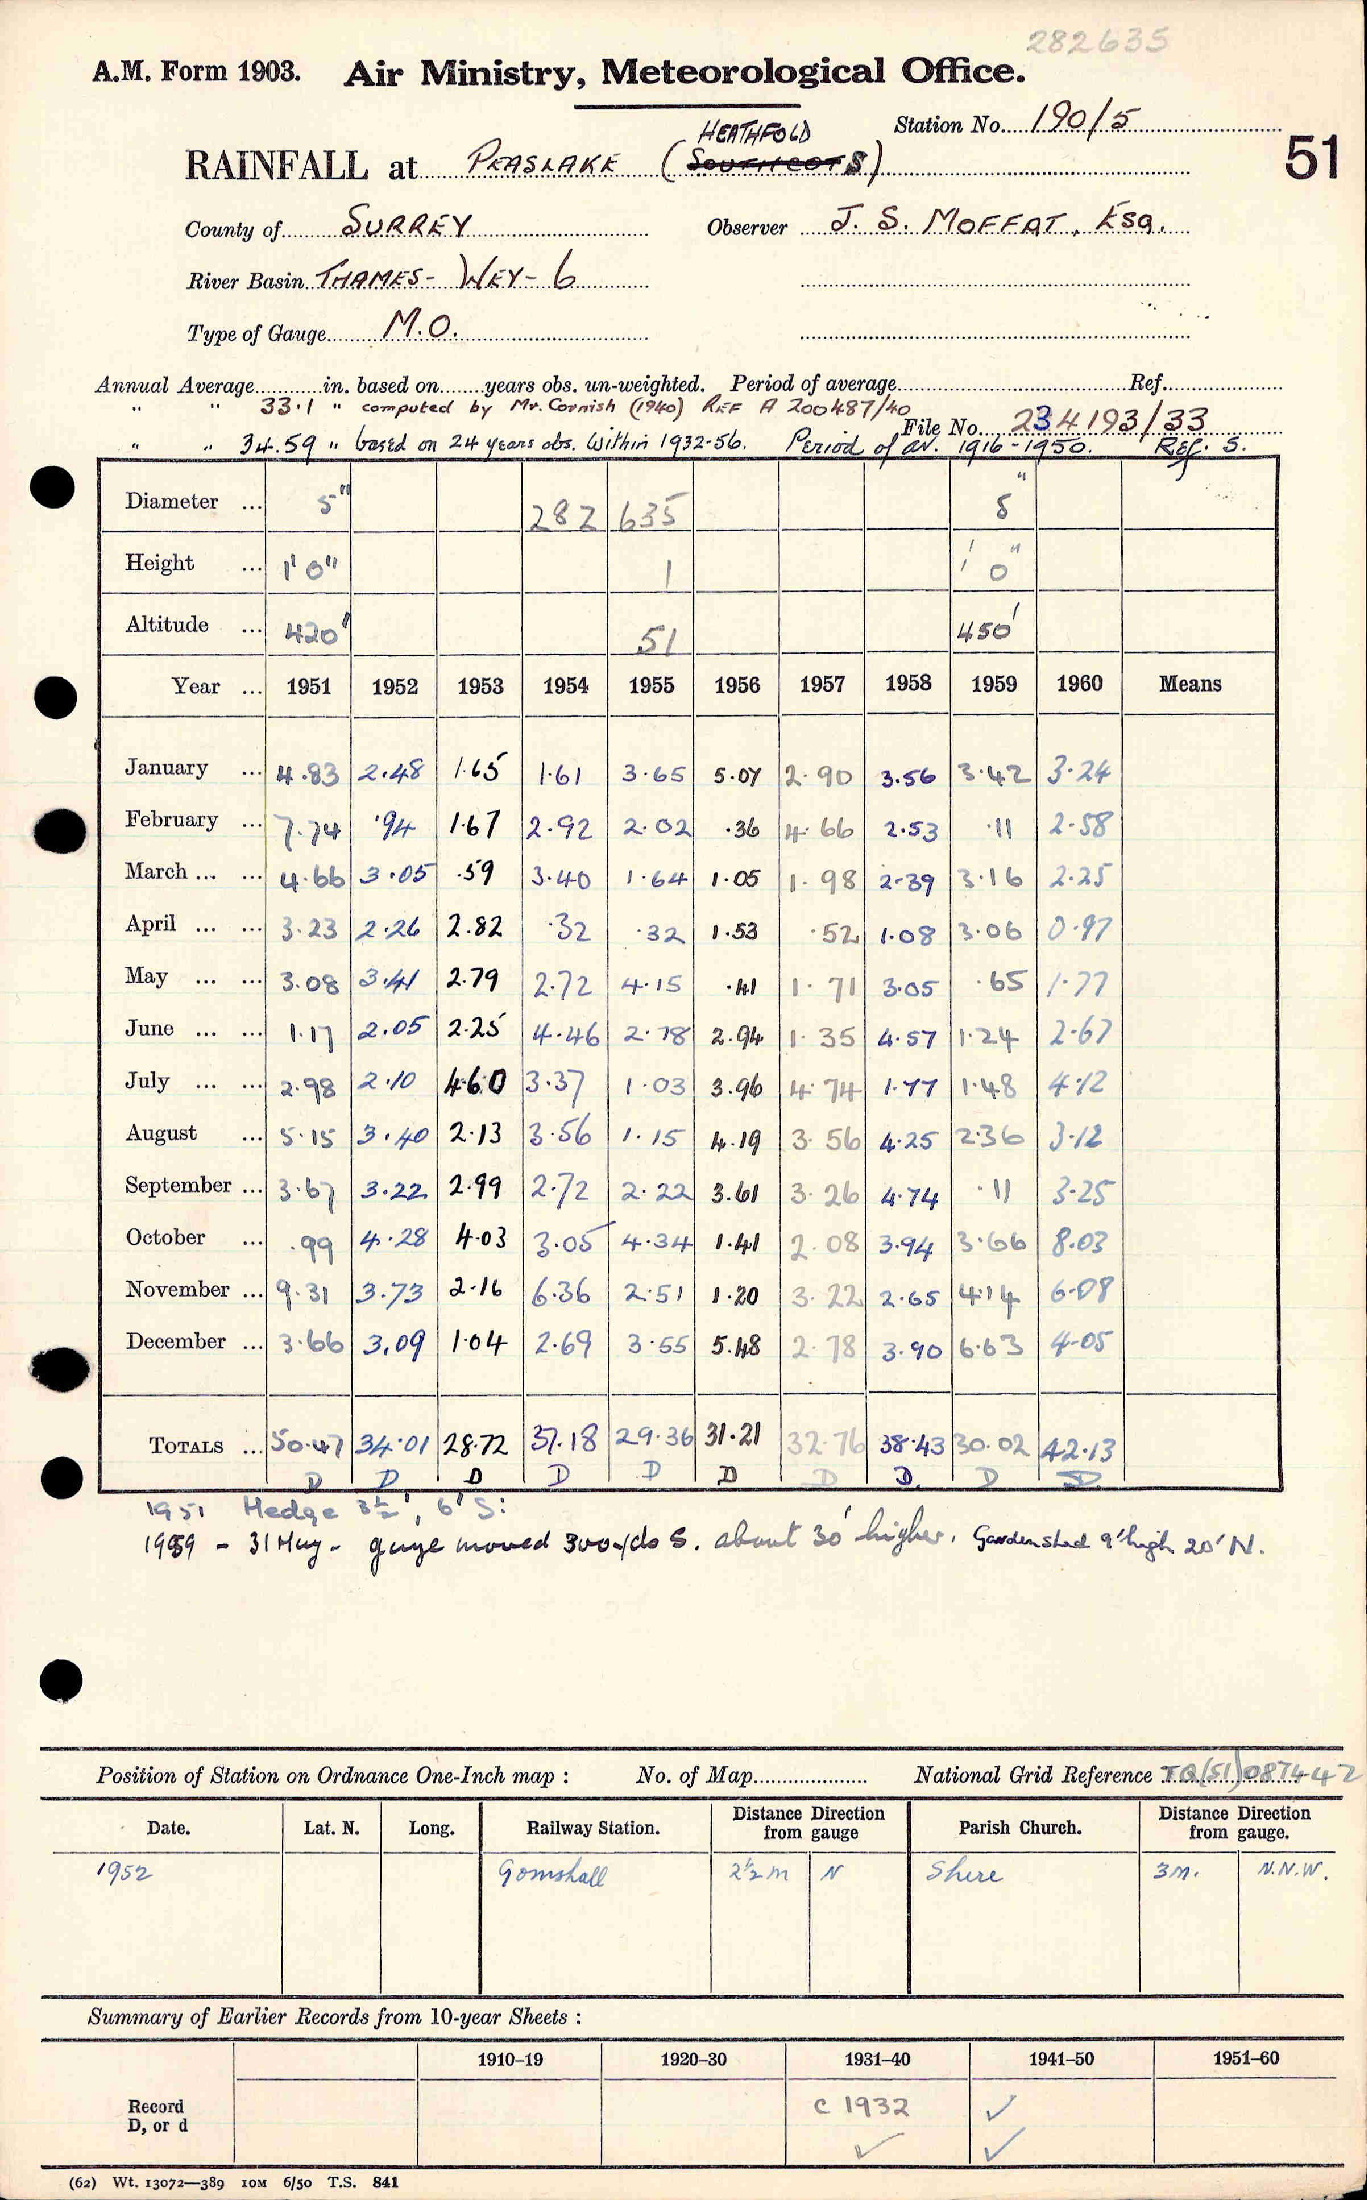 282635
A.M. Form 1903. Air Ministry, Meteorological Office.
Station No. 190/5
HEATHFOLD
RAINFALL at PEASLAKE (SOUTHCOTS)
51
County of SURREY Observer J. S. MOFFAT, ESQ.
River Basin THAMES - WEY - 6
Type of Gauge M.O.
Annual Average in. based on years obs. un-weighted. Period of average Ref.
" " 33.1 " computed by Mr. Cornish (1940) REF A 200487/40
File No. 234193/33
" " 34.59 " based on 24 years obs. Within 1932-56. Period of av. 1916-1950. Ref. S.
Diameter ... 5" 282 635 5"
Height ... 1'0" 1 1'0"
Altitude ... 420' 51 450'
Year ... 1951 1952 1953 1954 1955 1956 1957 1958 1959 1960 Means
January ... 4.83 2.48 1.65 1.61 3.65 5.07 2.90 3.56 3.42 3.24
February ... 7.74 .94 1.67 2.92 2.02 .36 4.66 2.53 .11 2.58
March ... ... 4.66 3.05 .59 3.40 1.64 1.05 1.98 2.39 3.16 2.25
April ... ... 3.23 2.26 2.82 .32 .32 1.53 .52 1.08 3.06 0.97
May ... ... 3.08 3.41 2.79 2.72 4.15 .41 1.71 3.05 .65 1.77
June ... ... 1.17 2.05 2.25 4.46 2.78 2.94 1.35 4.57 1.24 2.67
July ... ... 2.98 2.10 4.60 3.37 1.03 3.96 4.74 1.77 1.48 4.12
August ... 5.15 3.40 2.13 3.56 1.15 4.19 3.56 4.25 2.36 3.12
September ... 3.67 3.22 2.99 2.72 2.22 3.61 3.26 4.74 .11 3.25
October ... .99 4.28 4.03 3.05 4.34 1.41 2.08 3.94 3.66 8.03
November ... 9.31 3.73 2.16 6.36 2.51 1.20 3.22 2.65 4.14 6.08
December ... 3.66 3.09 1.04 2.69 3.55 5.48 2.78 3.90 6.63 4.05
TOTALS ... 50.47 34.01 28.72 37.18 29.36 31.21 32.76 38.43 30.02 42.13
D D D D D D D D. D D
1951 Hedge 3½', 6' S:
1959 - 31 Aug - gauge moved 300 yds S. about 30' higher. Garden shed 9' high 20' N.
Position of Station on Ordnance One-Inch map : No. of Map National Grid Reference TQ(51)087442
Date. Lat. N. Long. Railway Station. Distance Direction from gauge Parish Church. Distance Direction from gauge.
1952 Gomshall 2½ m N Shere 3m. N.N.W.
Summary of Earlier Records from 10-year Sheets :
1910–19 1920–30 1931–40 1941–50 1951–60
Record c 1932 ✓
D, or d ✓ ✓
(62) Wt. 13072—389 10M 6/50 T.S. 841